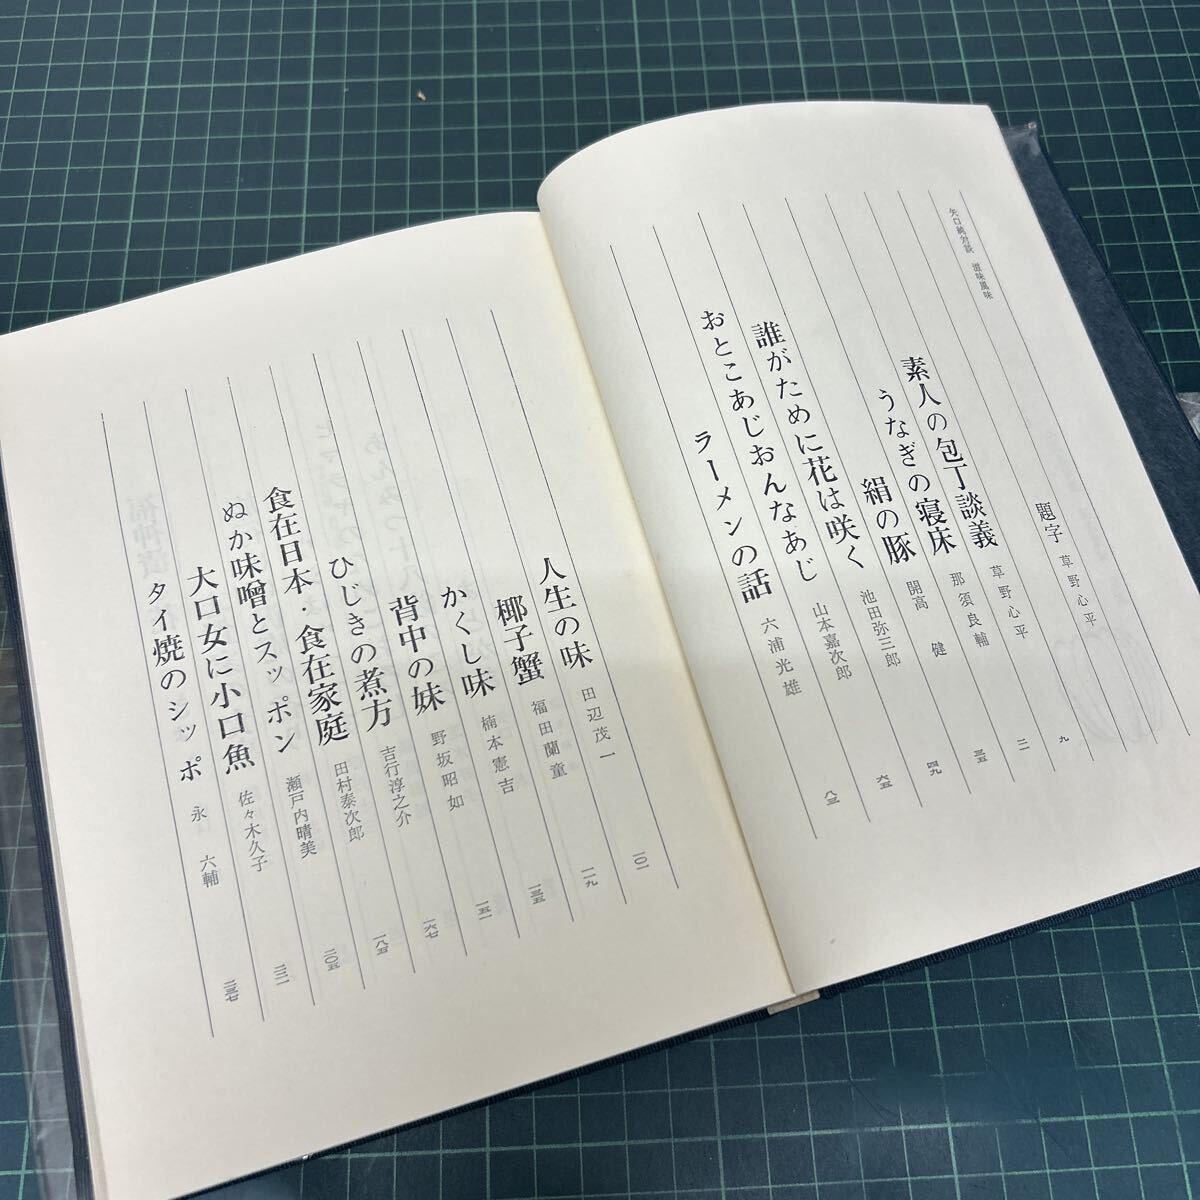 矢口純対談 滋味風味
題字 草野心平
素人の包丁談義 草野心平 九
うなぎの寝床 那須良輔 二一
絹の豚 開高 健 三五
誰がために花は咲く 池田弥三郎 四九
おとこあじおんなあじ 山本嘉次郎 六五
ラーメンの話 六浦光雄 八三
人生の味 田辺茂一 一〇一
椰子蟹 福田蘭童 一一九
かくし味 楠本憲吉 一三五
背中の妹 野坂昭如 一五一
ひじきの煮方 吉行淳之介 一六七
食在日本・食在家庭 田村泰次郎 一八五
ぬか味噌とスッポン 瀬戸内晴美 二〇五
大口女に小口魚 佐々木久子 二二一
タイ焼のシッポ 永 六輔 二三七